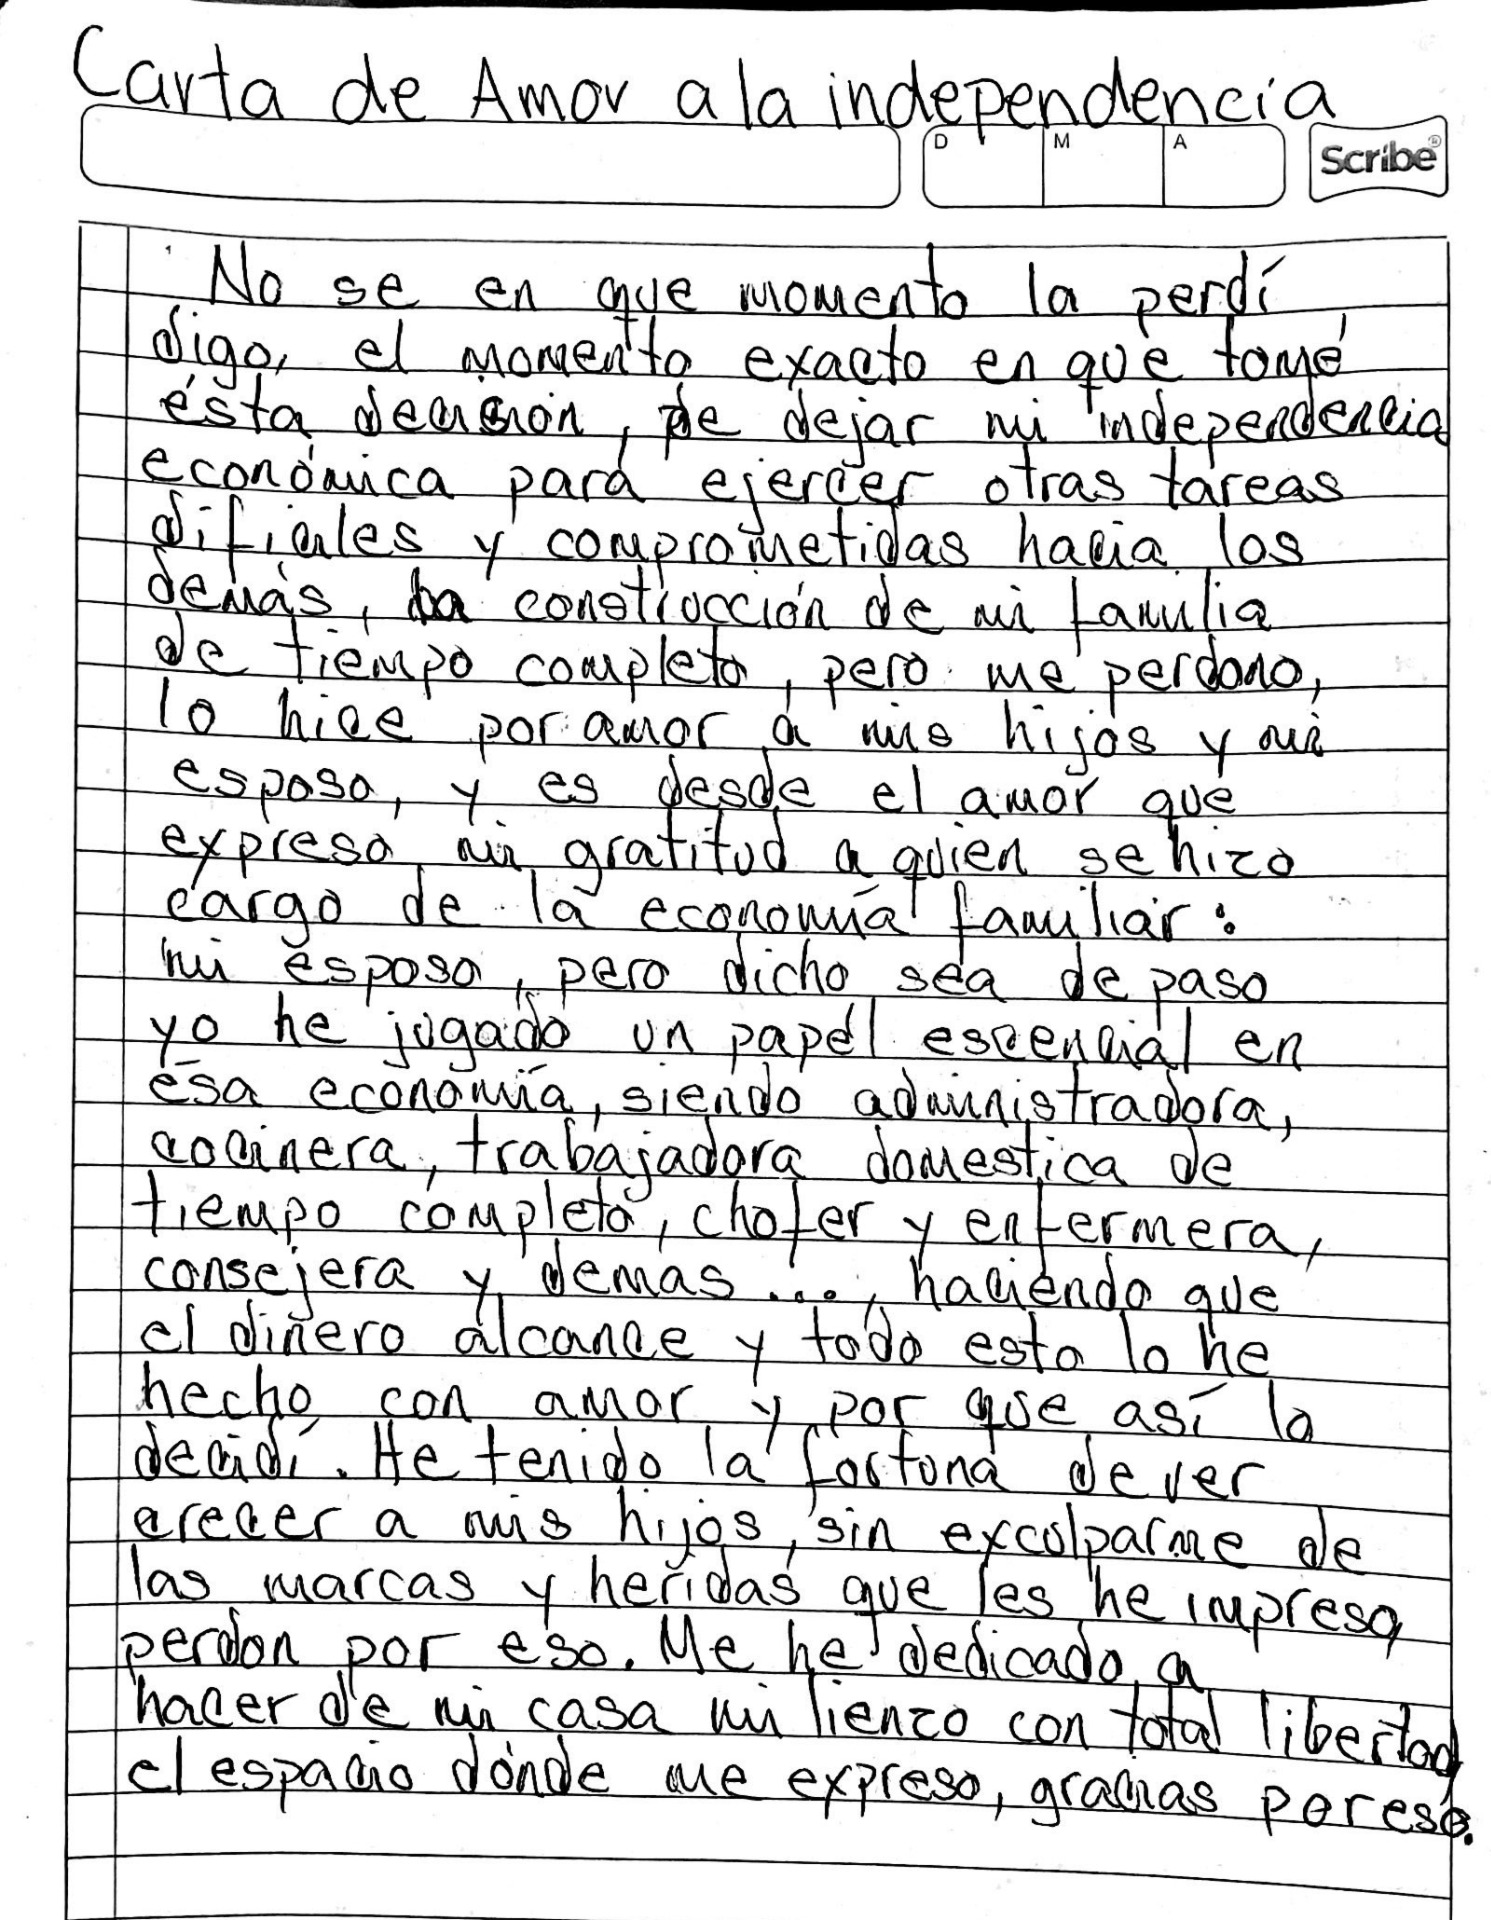 Carta de Amor a la independencia
D M A Scribe®
No se en que momento la perdí
digo, el momento exacto en que tomé
ésta decisión, de dejar mi independencia
económica para ejercer otras tareas
difíciles y comprometidas hacia los
demás, la construcción de mi familia
de tiempo completo, pero me perdono,
lo hice por amor a mis hijos y mi
esposo, y es desde el amor que
expreso mi gratitud a quien se hizo
cargo de la economía familiar:
mi esposo, pero dicho sea de paso
yo he jugado un papel escencial en
esa economía, siendo administradora,
cocinera, trabajadora domestica de
tiempo completo, chofer y enfermera,
consejera y demas ..., haciendo que
el dinero alcance y todo esto lo he
hecho con amor y por que así lo
decidí. He tenido la fortuna de ver
crecer a mis hijos, sin exculparme de
las marcas y heridas que les he impreso,
perdon por eso. Me he dedicado a
hacer de mi casa mi lienzo con total libertad
el espacio dónde me expreso, gracias por eso.